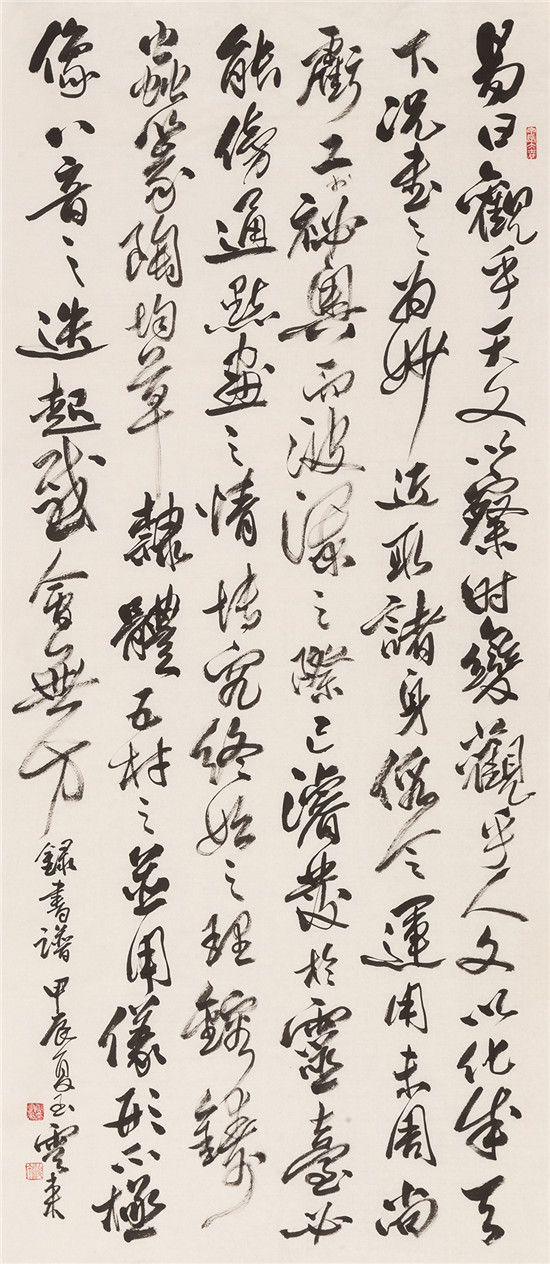 易曰觀乎天文以察时變觀乎人文以化成天
下況書之為妙近取諸身假令運用未周尚
虧工於祕奧而波瀾之際已濬發於靈臺必
能傍通點畫之情博究終始之理鎔鑄
蟲篆陶均草隸體五材之並用儀形不極
像八音之迭起感會無方
錄書譜甲辰夏雲来